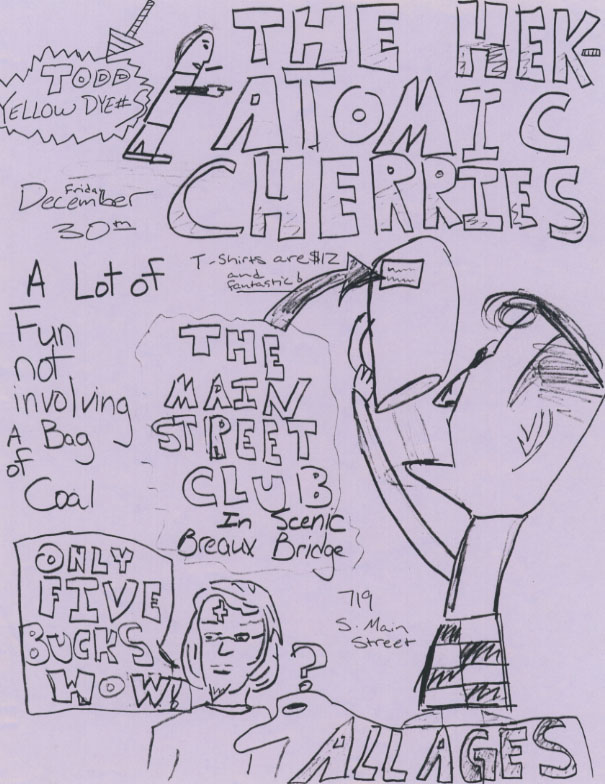 THE HEK-
ATOMIC
CHERRIES
TODD
YELLOW DYE#5
Friday
December
30th
T-Shirts are $12
and
fantastic!
A Lot of
Fun
not
involving
A Bag
of
Coal
THE
MAIN
STREET
CLUB
In Scenic
Breaux Bridge
719
S. Main
Street
ONLY
FIVE
BUCKS
WOW!
?
ALL AGES